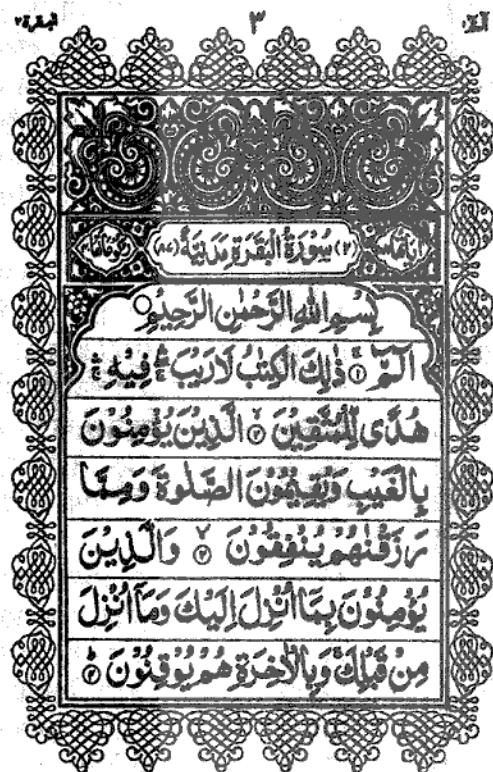 البقرة ٢ ٣ الٓمّٓ
(٢) سُوْرَةُ الْبَقَرَةِ مَدَنِيَّةٌ (٨٧)
بِسْمِ اللّٰهِ الرَّحْمٰنِ الرَّحِيْمِ
الٓمّٓ ۝١ ذٰلِكَ الْكِتٰبُ لَا رَيْبَ ۛ فِيْهِ ۛ
هُدًى لِّلْمُتَّقِيْنَ ۝٢ الَّذِيْنَ يُؤْمِنُوْنَ
بِالْغَيْبِ وَيُقِيْمُوْنَ الصَّلٰوةَ وَمِمَّا
رَزَقْنٰهُمْ يُنْفِقُوْنَ ۝٣ وَالَّذِيْنَ
يُؤْمِنُوْنَ بِمَآ اُنْزِلَ اِلَيْكَ وَمَآ اُنْزِلَ
مِنْ قَبْلِكَ وَبِالْاٰخِرَةِ هُمْ يُوْقِنُوْنَ ۝٤